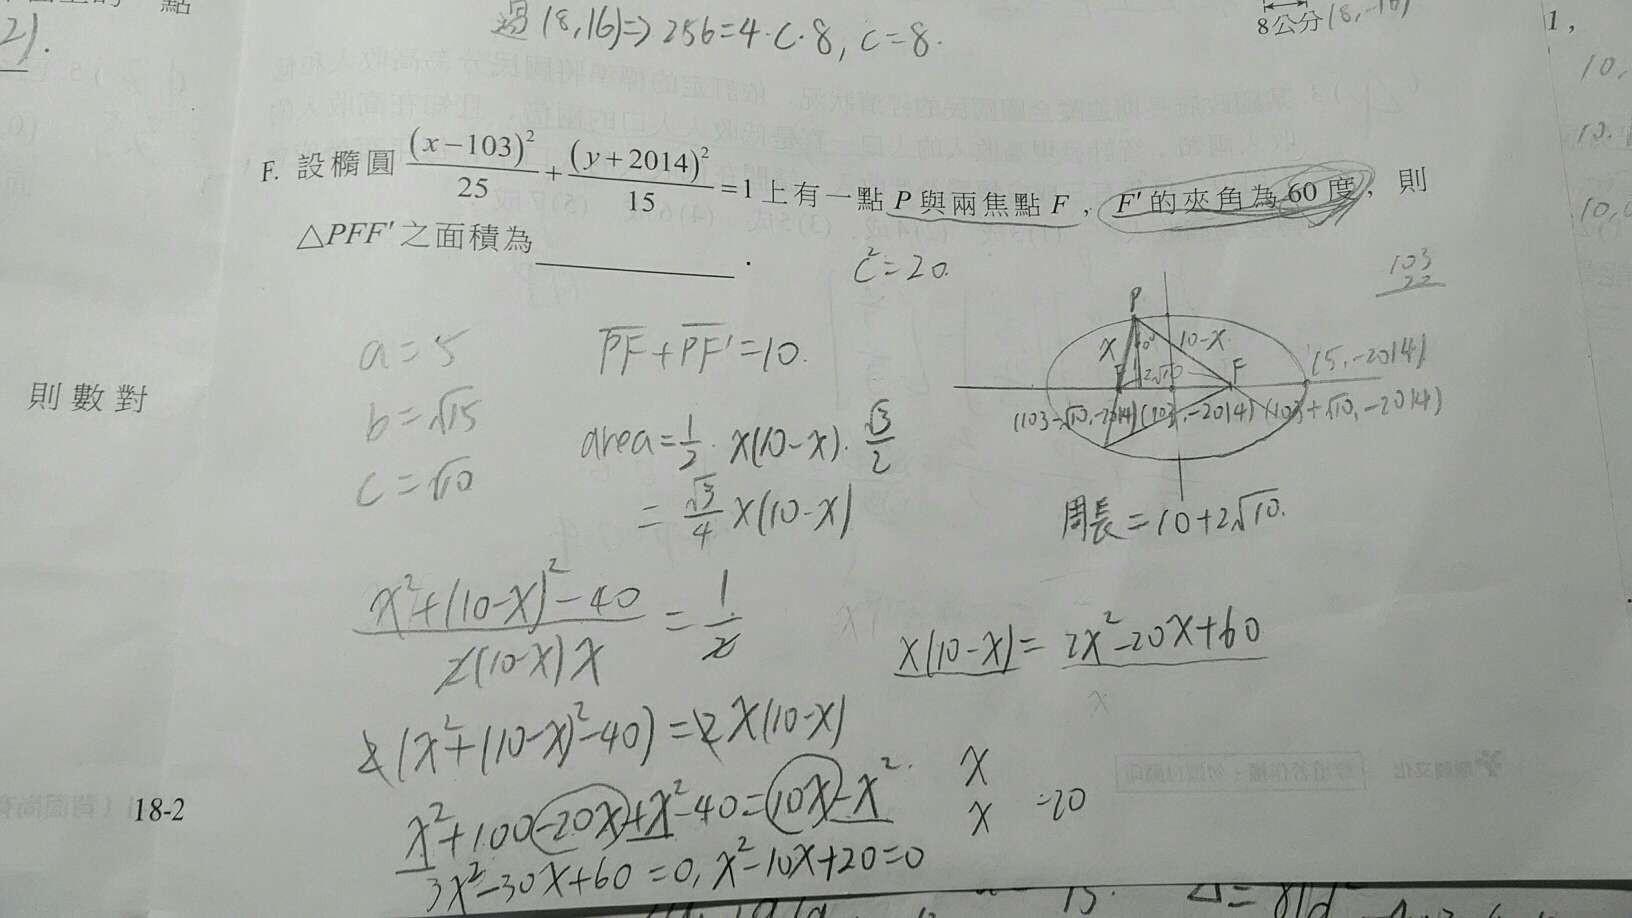 2).
過(8,16)⇒256=4·c·8, c=8.
8公分(8,-16)
1,
10,
F. 設橢圓 (x-103)²/25 + (y+2014)²/15 = 1 上有一點 P 與兩焦點 F , F' 的夾角為 60 度, 則
△PFF' 之面積為________.
c²=20.
103
22
a=5
PF+PF'=10.
b=√15
c=√10
area=1/2·x(10-x)·√3/2
=√3/4 x(10-x)
P
x 10-x
2√10 F
(5,-2014)
(103-√10,-2014)(103,-2014)(103+√10,-2014)
周長=10+2√10.
則數對
(x²+(10-x)²-40)/(2(10-x)x) = 1/2
x(10-x)=2x²-20x+60
2(x²+(10-x)²-40)=2x(10-x)
x²+100-20x+x²-40=10x-x².
x
x -20
3x²-30x+60=0, x²-10x+20=0
18-2